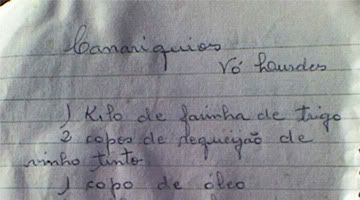 Canariquios
Vó Lourdes
1 Kilo de farinha de trigo
2 copos de requeijão de
vinho tinto
1 copo de óleo